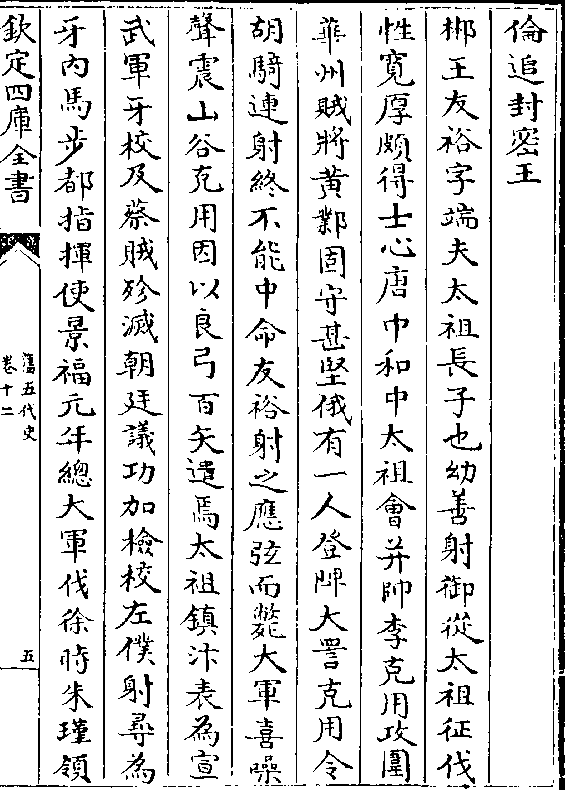 倫追封密王
郴王友裕字端夫太祖長子也幼善射御從太祖征伐
性寛厚頗得士心唐中和中太祖㑹并帥李克用攻圍
華州賊將黄鄴固守甚堅俄有一人登陴大詈克用令
胡騎連射終不能中命友裕射之應弦而斃大軍喜噪
聲震山谷克用因以良弓百矢遺焉太祖鎮汴表為宣
武軍牙校及蔡賊殄滅朝廷議功加檢校左僕射尋為
牙内馬步都指揮使景福元年總大軍伐徐時朱瑾領
欽定四庫全書
舊五代史
卷十二
五